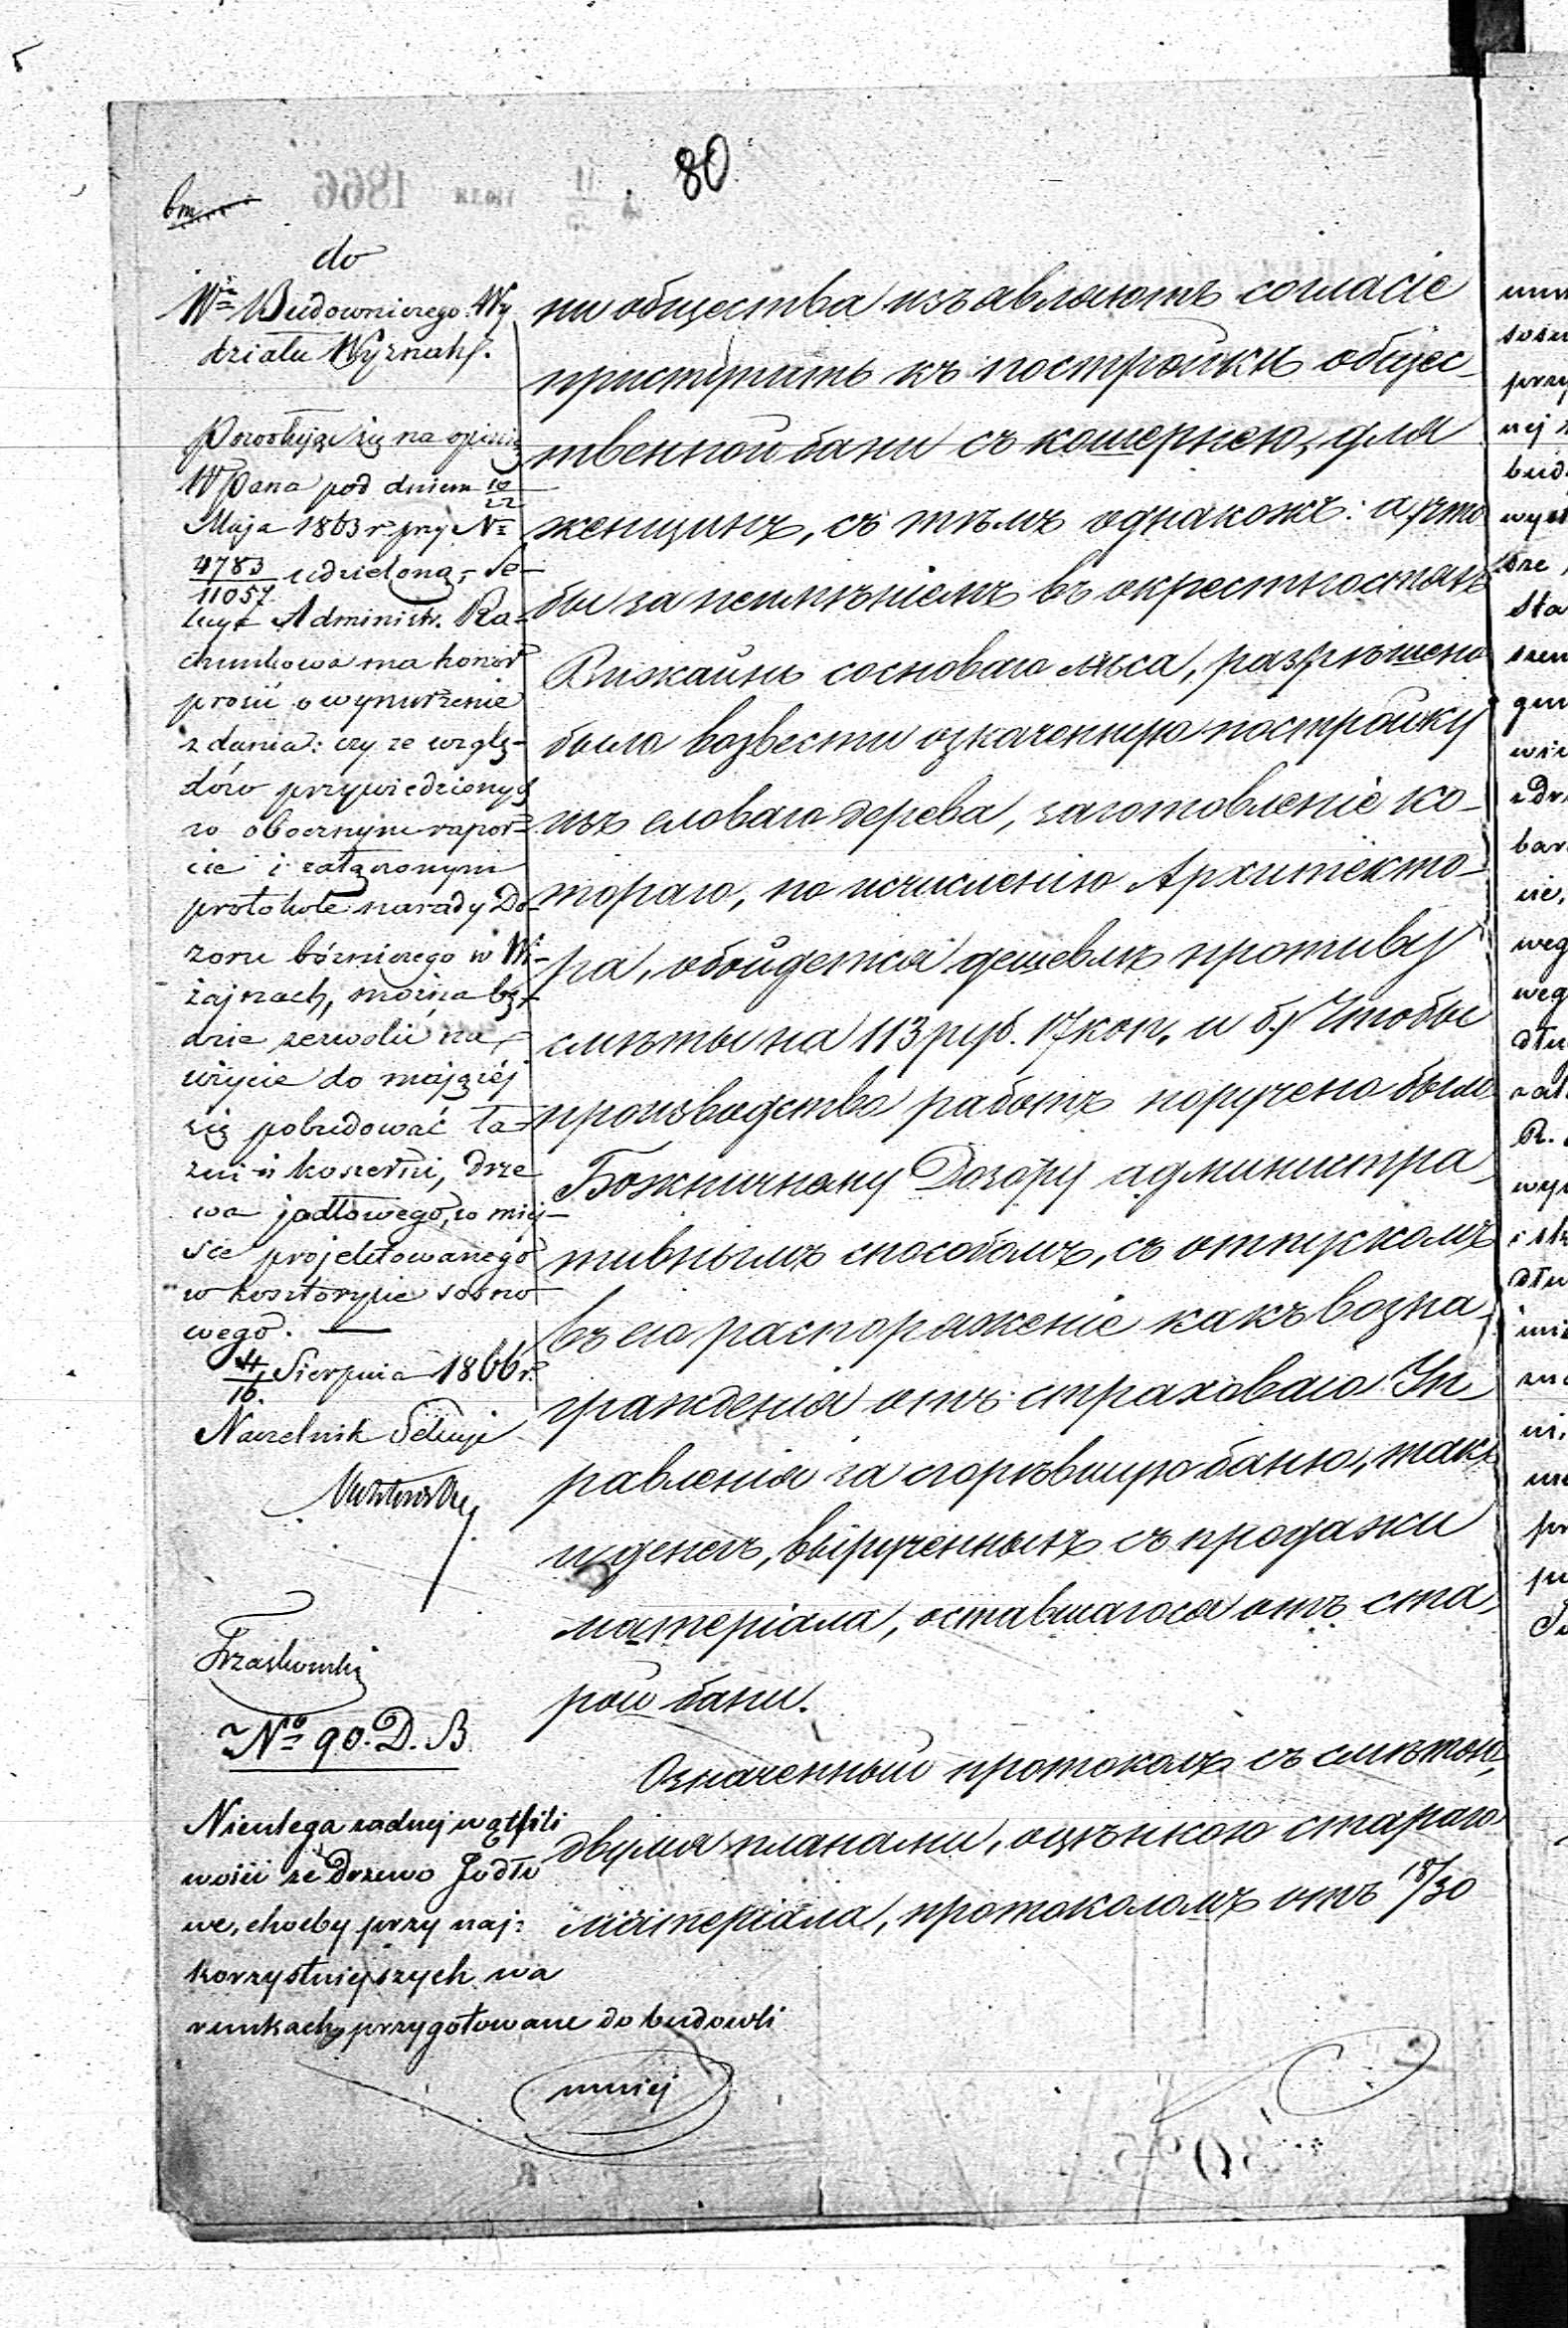 80
do
Wº Budowniczego Wy
działu Wyznań.
Powołując się na opinią
WPana pod dniem 10/22
Maja 1863 r. przy Nº
4783/11057 udzieloną, Se-
kcya Administr. Ra-
chunkowa ma honor
prosić o wynurzenie
zdania: czy ze wzglę-
dów przywiedzionych
w obocznym rapor-
cie i załączonym
protokole narady Do-
zoru bóżniczego w Wi-
żajnach, można bę-
dzie zezwolić na
użycie do mającej
się pobudować ła-
źni i koszerni, drze
wa jodłowego, w miej-
sce projektowanego
w kosztorysie sosno
wego. —
4/16 Sierpnia 1866 r.
Naczelnik Sekcyi
Trzaskowski
Nº 90. D. B.
Nieulega żadnej wątpli
wości że Drzewo Jodło
we, choćby przy naj:
korzystniejszych wa
runkach przygotowane do budowli
mniej
ни общества изъявляютъ согласіе
приступить къ постройкѣ общес-
твенной бани съ кошернею, для
женщинъ, съ тѣмъ однакожъ: а, что
бы за неимѣніемъ въ окрестностяхъ
Вижайнъ сосноваго лѣса, разрѣшено
было возвести означенную постройку
изъ еловаго дерева, заготовленіе ко-
тораго, по исчисленію Архитекто-
ра, обойдется дешевлѣ противу
смѣты на 113 руб. 17 коп. и б.) Чтобы
производство работъ поручено было
Божничному Дозору администра-
тивнымъ способомъ, съ отпускомъ
въ его распоряженіе какъ возна-
гражденія отъ страховаго Уп
равленія за сгорѣвшую баню, такъ
и денегъ, вырученныхъ съ продажи
матеріала, оставшагося отъ ста-
рой бани.
Означенный протоколъ съ смѣтою,
двумя планами, оцѣнкою стараго
матеріала, протоколомъ отъ 18/30